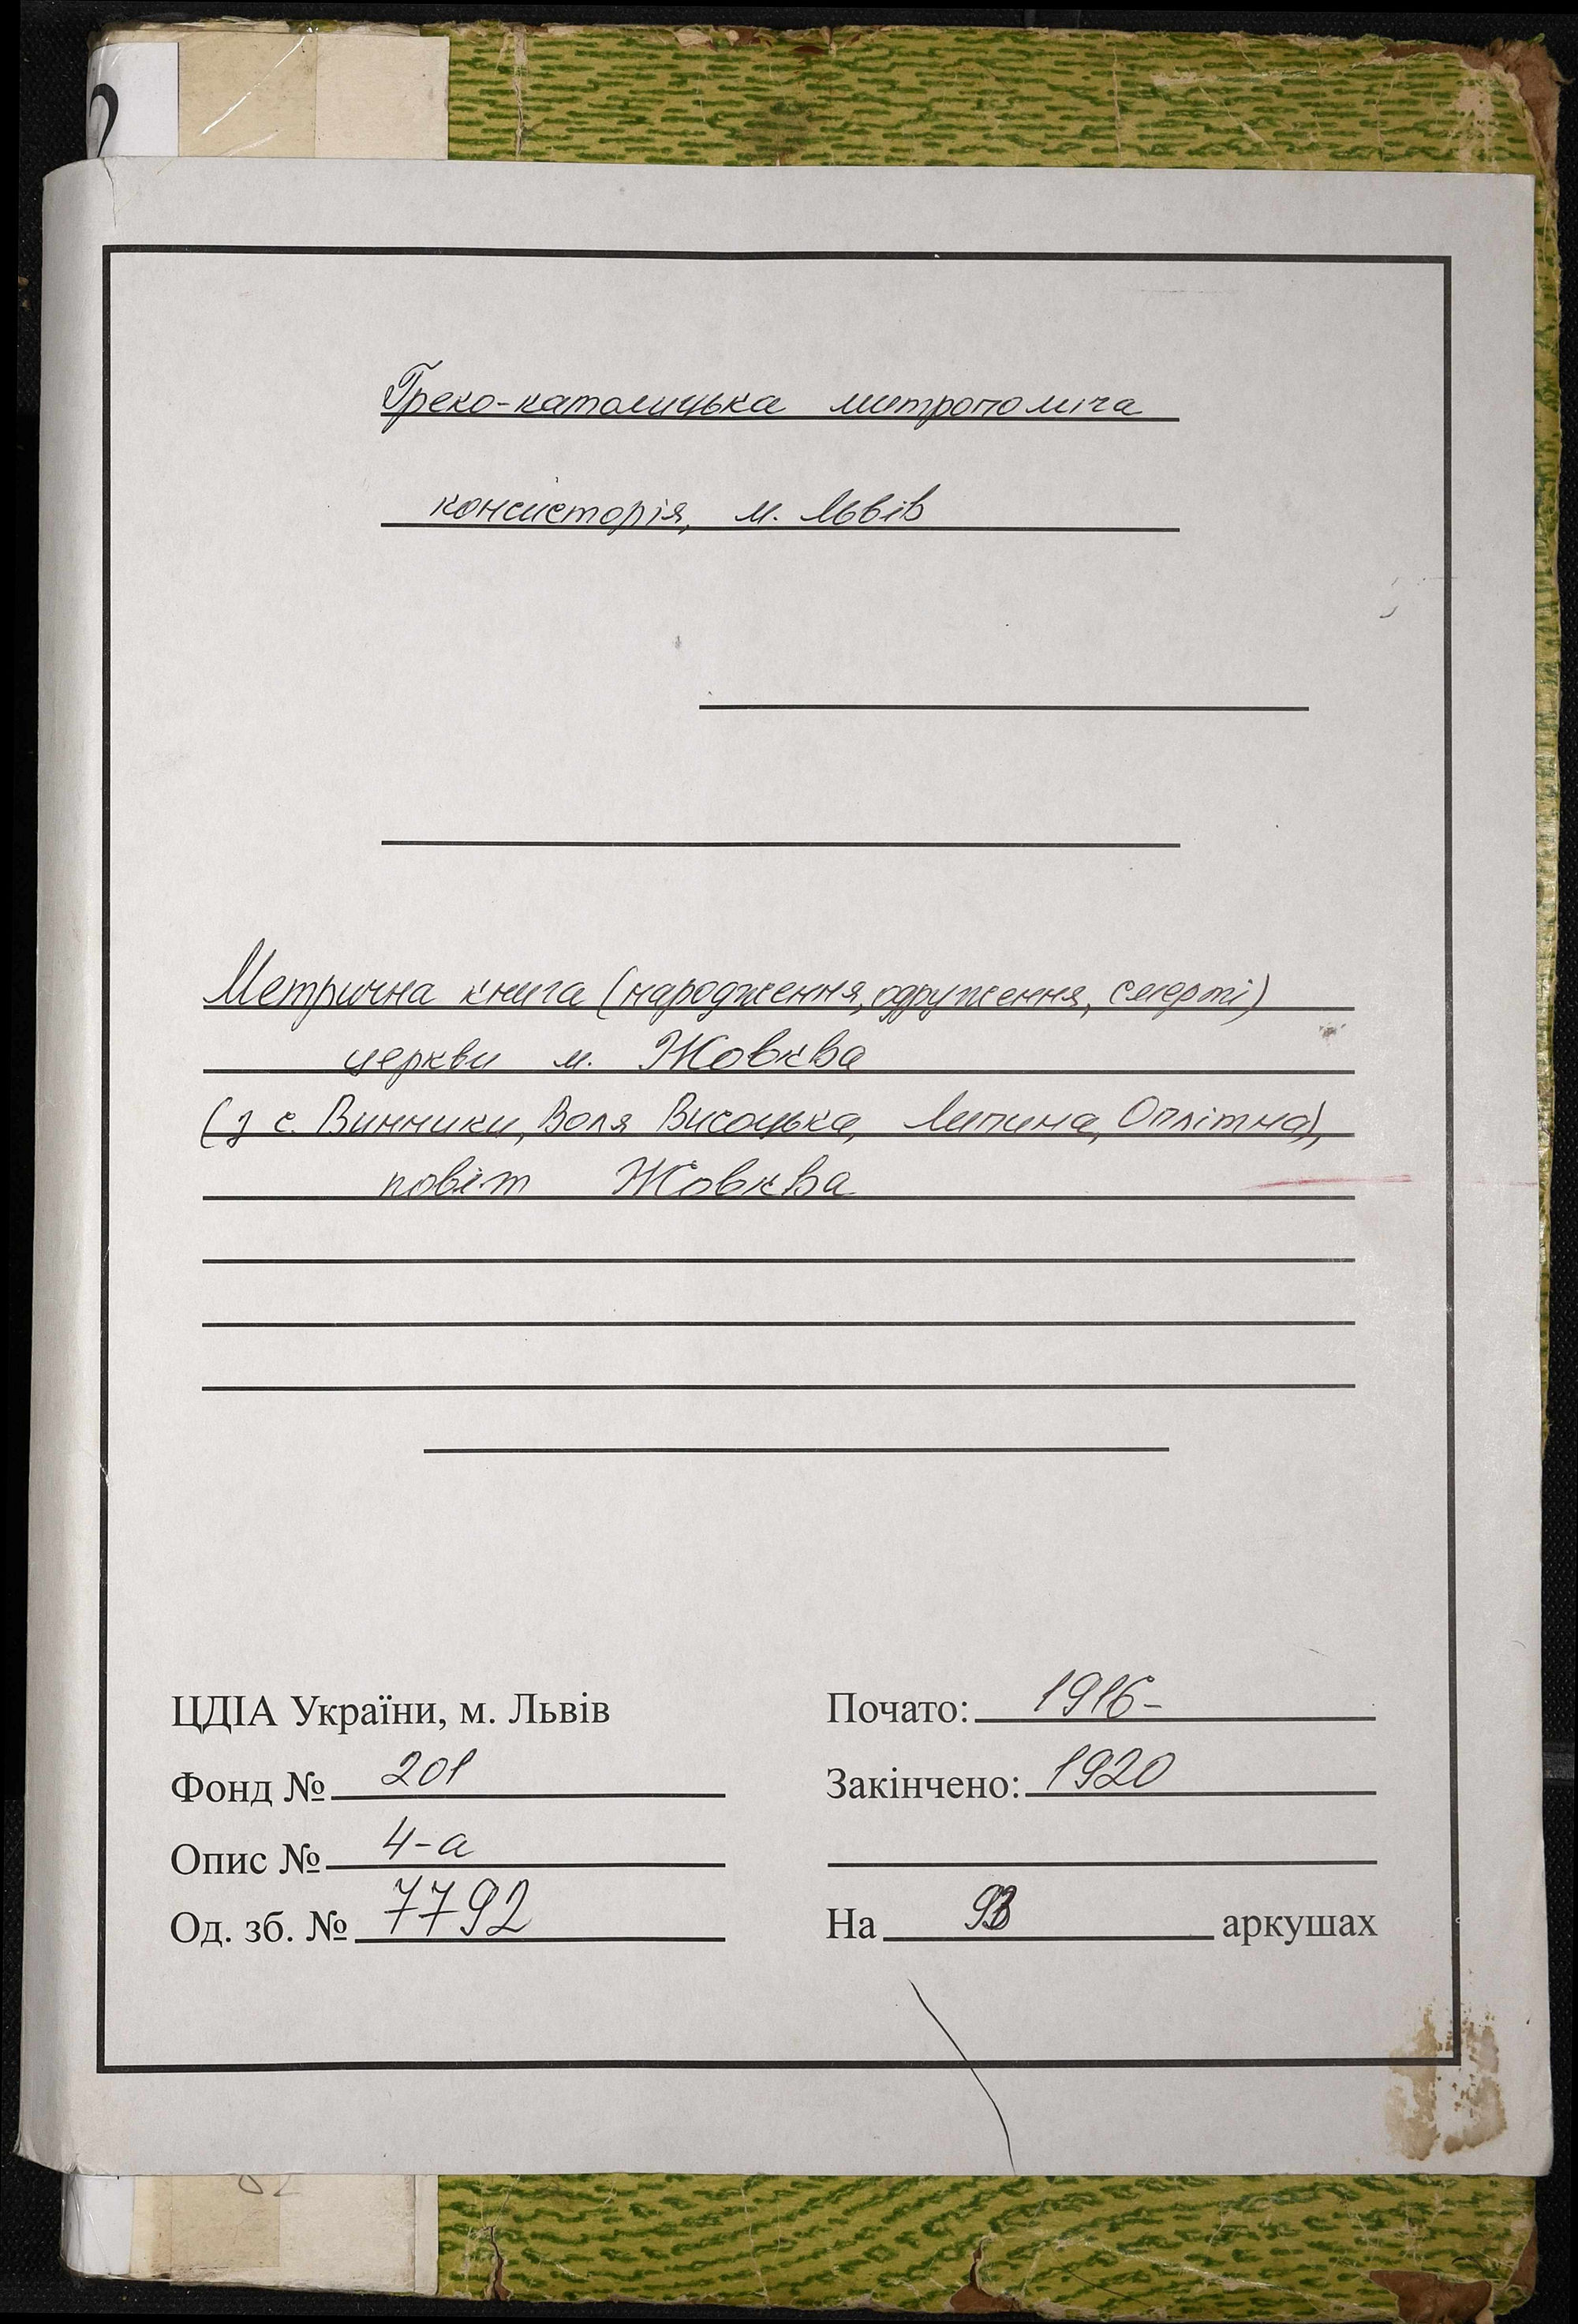 Греко-католицька митрополича
консисторія, м. Львів
Метрична книга (народження, одруження, смерті)
церкви м. Жовква
(з с. Винники, Воля Висоцька, Липина, Оплітна),
повіт Жовква
ЦДІА України, м. Львів
Фонд № 201
Опис № 4-а
Од. зб. № 7792
Почато: 1916-
Закінчено: 1920
На 93 аркушах